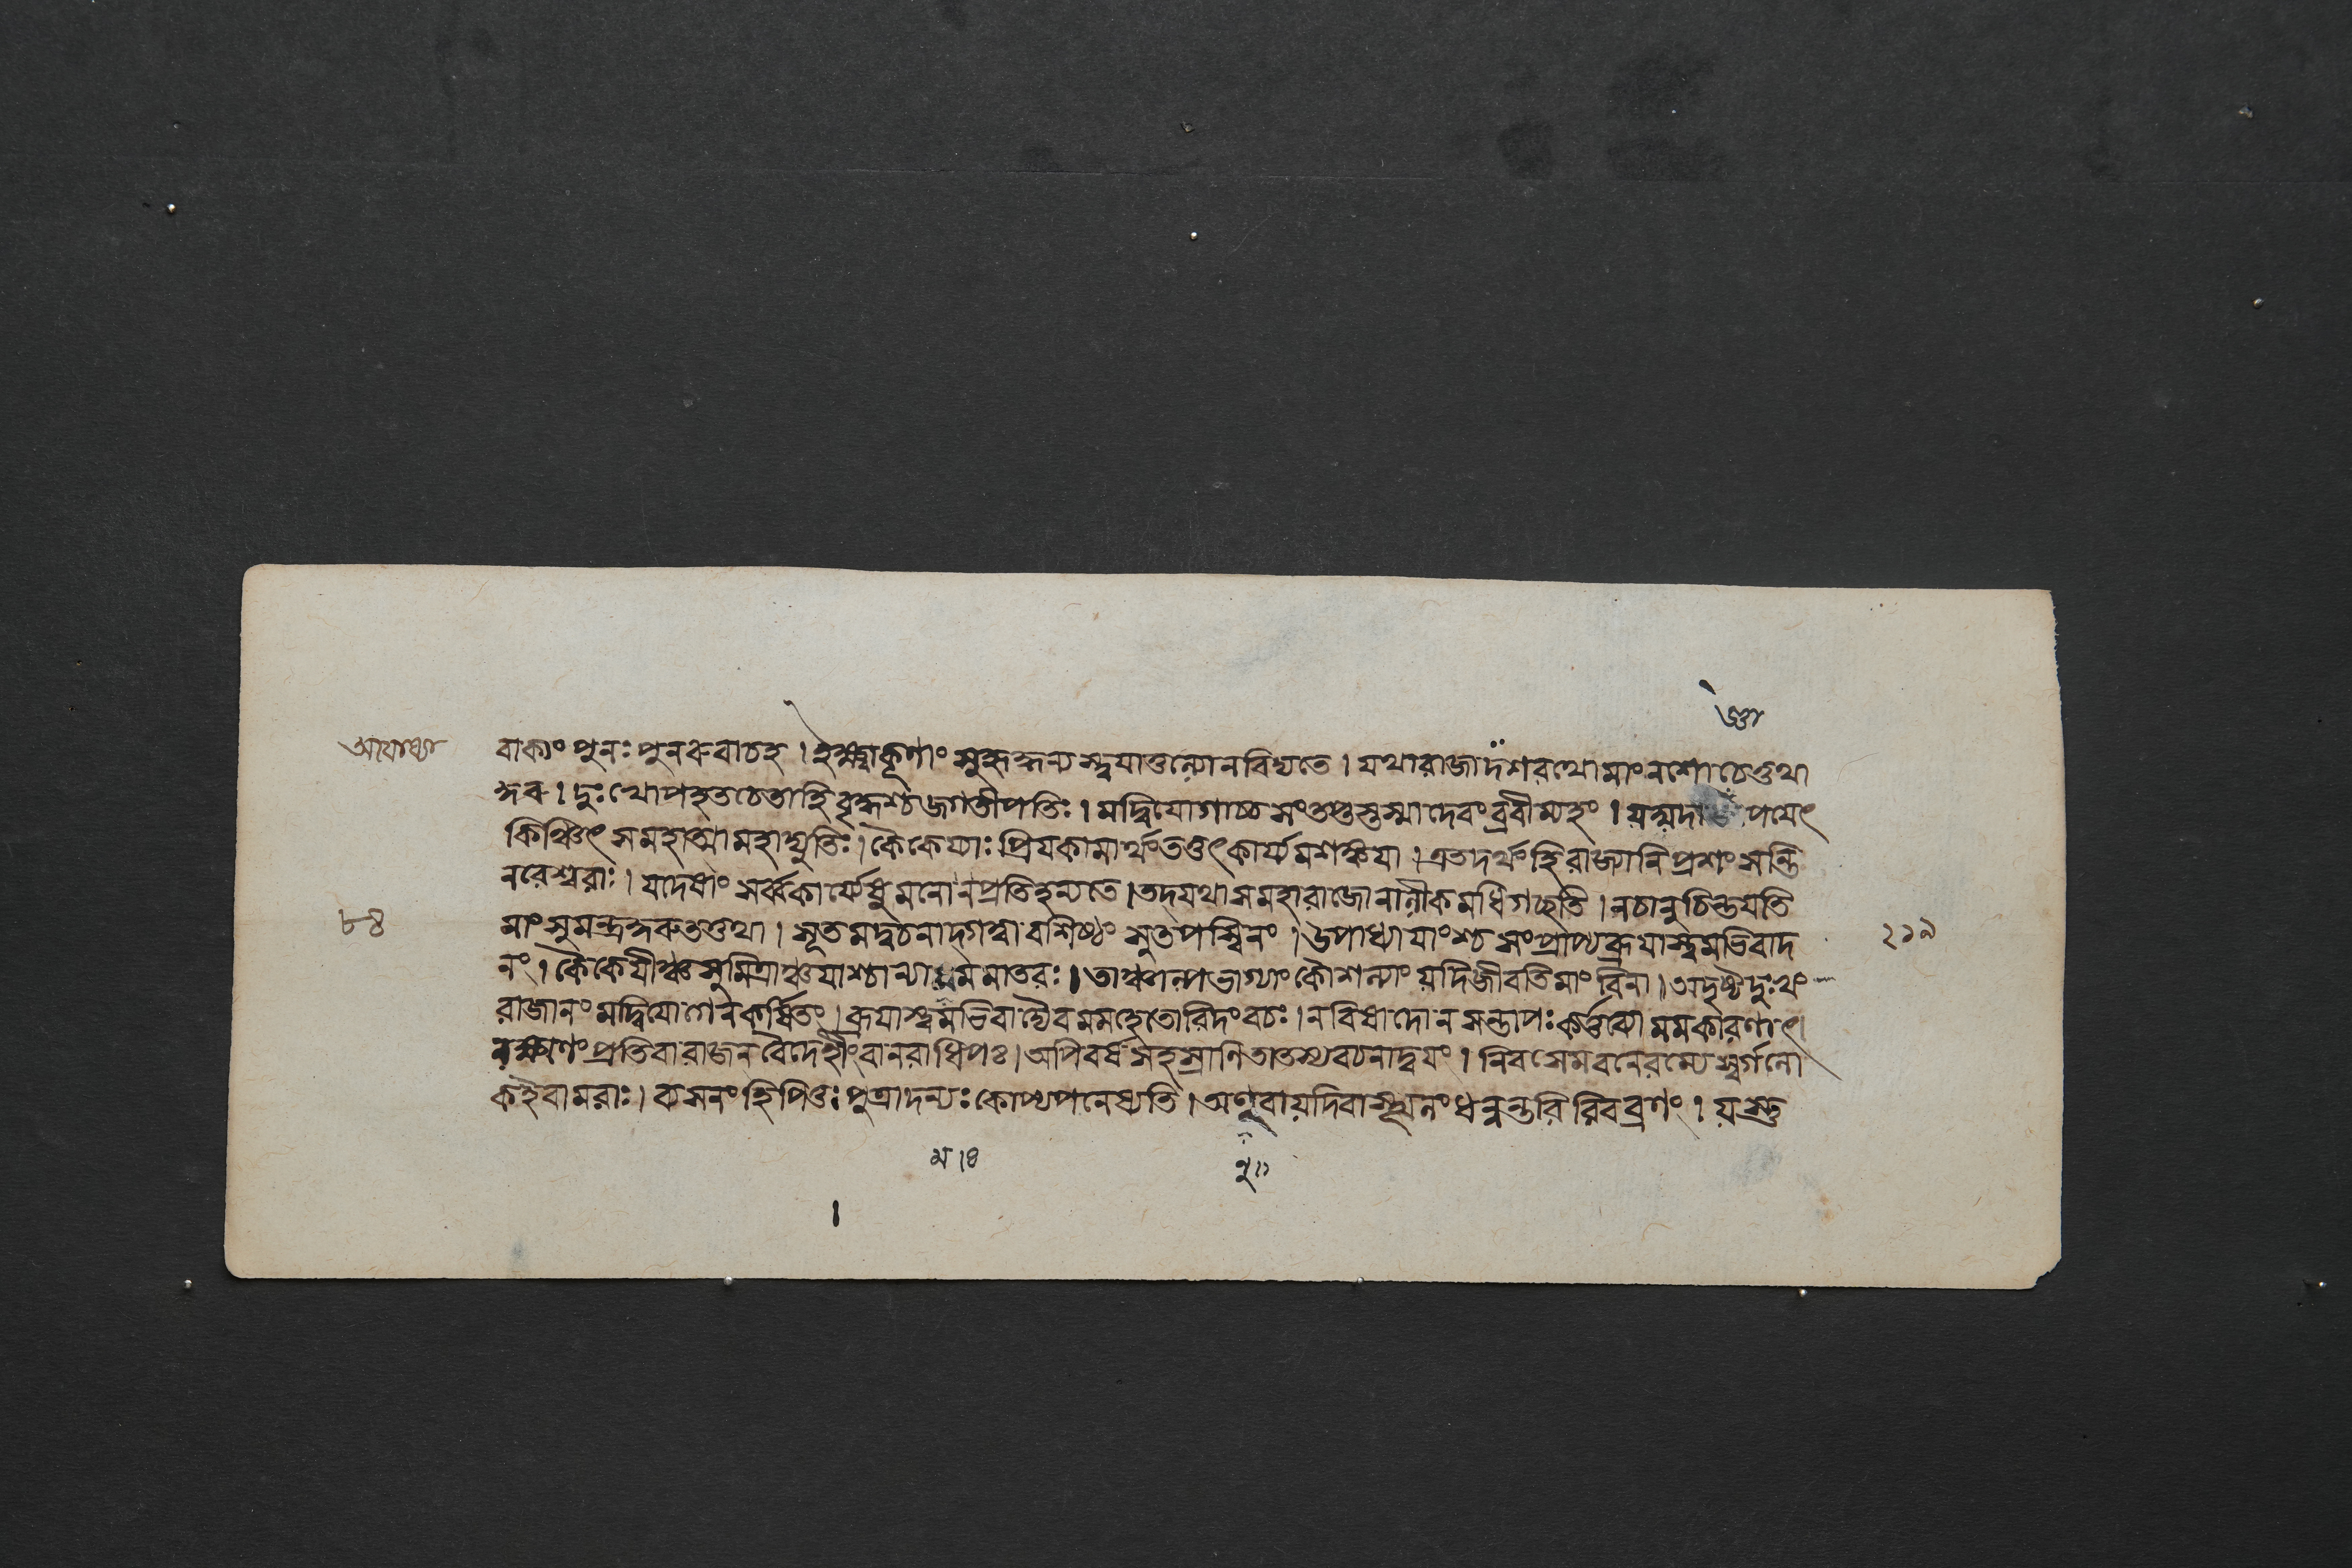 অযোধ্যা
জ্ঞা
বাক্যং পুনঃ পুনরুবাচহ । ইক্ষ্বাকূণাং সুহৃন্নান্যস্ত্বয়াতুল্যোনবিদ্যতে । যথারাজাদশরথোমাংনশোচেত্তথা
ঙ্কুরু । দুঃখোপহতচেতাহিবৃদ্ধশ্চজগতীপতিঃ । মদ্বিয়োগাচ্চসংতপ্তস্তস্মাদেবংব্রবীম্যহং । যদ্যদা পয়েৎ
কিঞ্চিৎ সমহাত্মামহাদ্যুতিঃ । কৈকেয্যাঃ প্রিয়কামার্থংতত্তৎকার্য্যমশঙ্কয়া । এতদর্থংহিরাজ্যানিপ্রশংসন্তি
নরেশ্বরাঃ । যদেষাং সর্ব্বকার্য্যেষুমনোনপ্রতিহন্যতে । তদ্যথাসমহারাজোনালীকমধিগচ্ছতি । নচানুচিন্তয়তি
৮৪
মাংসুমন্ত্রঙ্কুরুতত্তথা । সূতমদ্বচনাদ্গত্বাবশিষ্ঠং সুতপস্বিনং । উপাধ্যায়াংশ্চসংপ্রাপ্যব্রূয়াস্ত্বমভিবাদ
২১৯
নং । কৈকেয়ীঞ্চসুমিত্রাঞ্চযাশ্চান্যামমমাতরঃ । তাঞ্চাল্পভাগ্যাংকৌশল্যাংয়দিজীবতিমাংবিনা । অদৃষ্টদুঃখং
রাজানংমদ্বিয়োগেনকর্ষিতং । ব্রূয়াস্ত্বমভিবাদ্যৈবমমহেতোরিদংবচঃ । নবিষাদোনসন্তাপঃকর্ত্তব্যোমমকারণাৎ।
লক্ষ্মণংপ্রতিবারাজনবৈদেহীংবানরাধিপঃ । অপিবর্ষসহস্রাণিতাতস্যবচনাদ্বয়ং । নিবসেমবনেরম্যেস্বর্গলো
কইবামরাঃ । ব্যসনংহিপিতুঃপুত্রাদন্যঃকোপ্যপনেষ্যতি । অণুবায়দিবাস্থূলংধন্বন্তরিরিবব্রণং । য়স্তু
ম।৪
নু॥